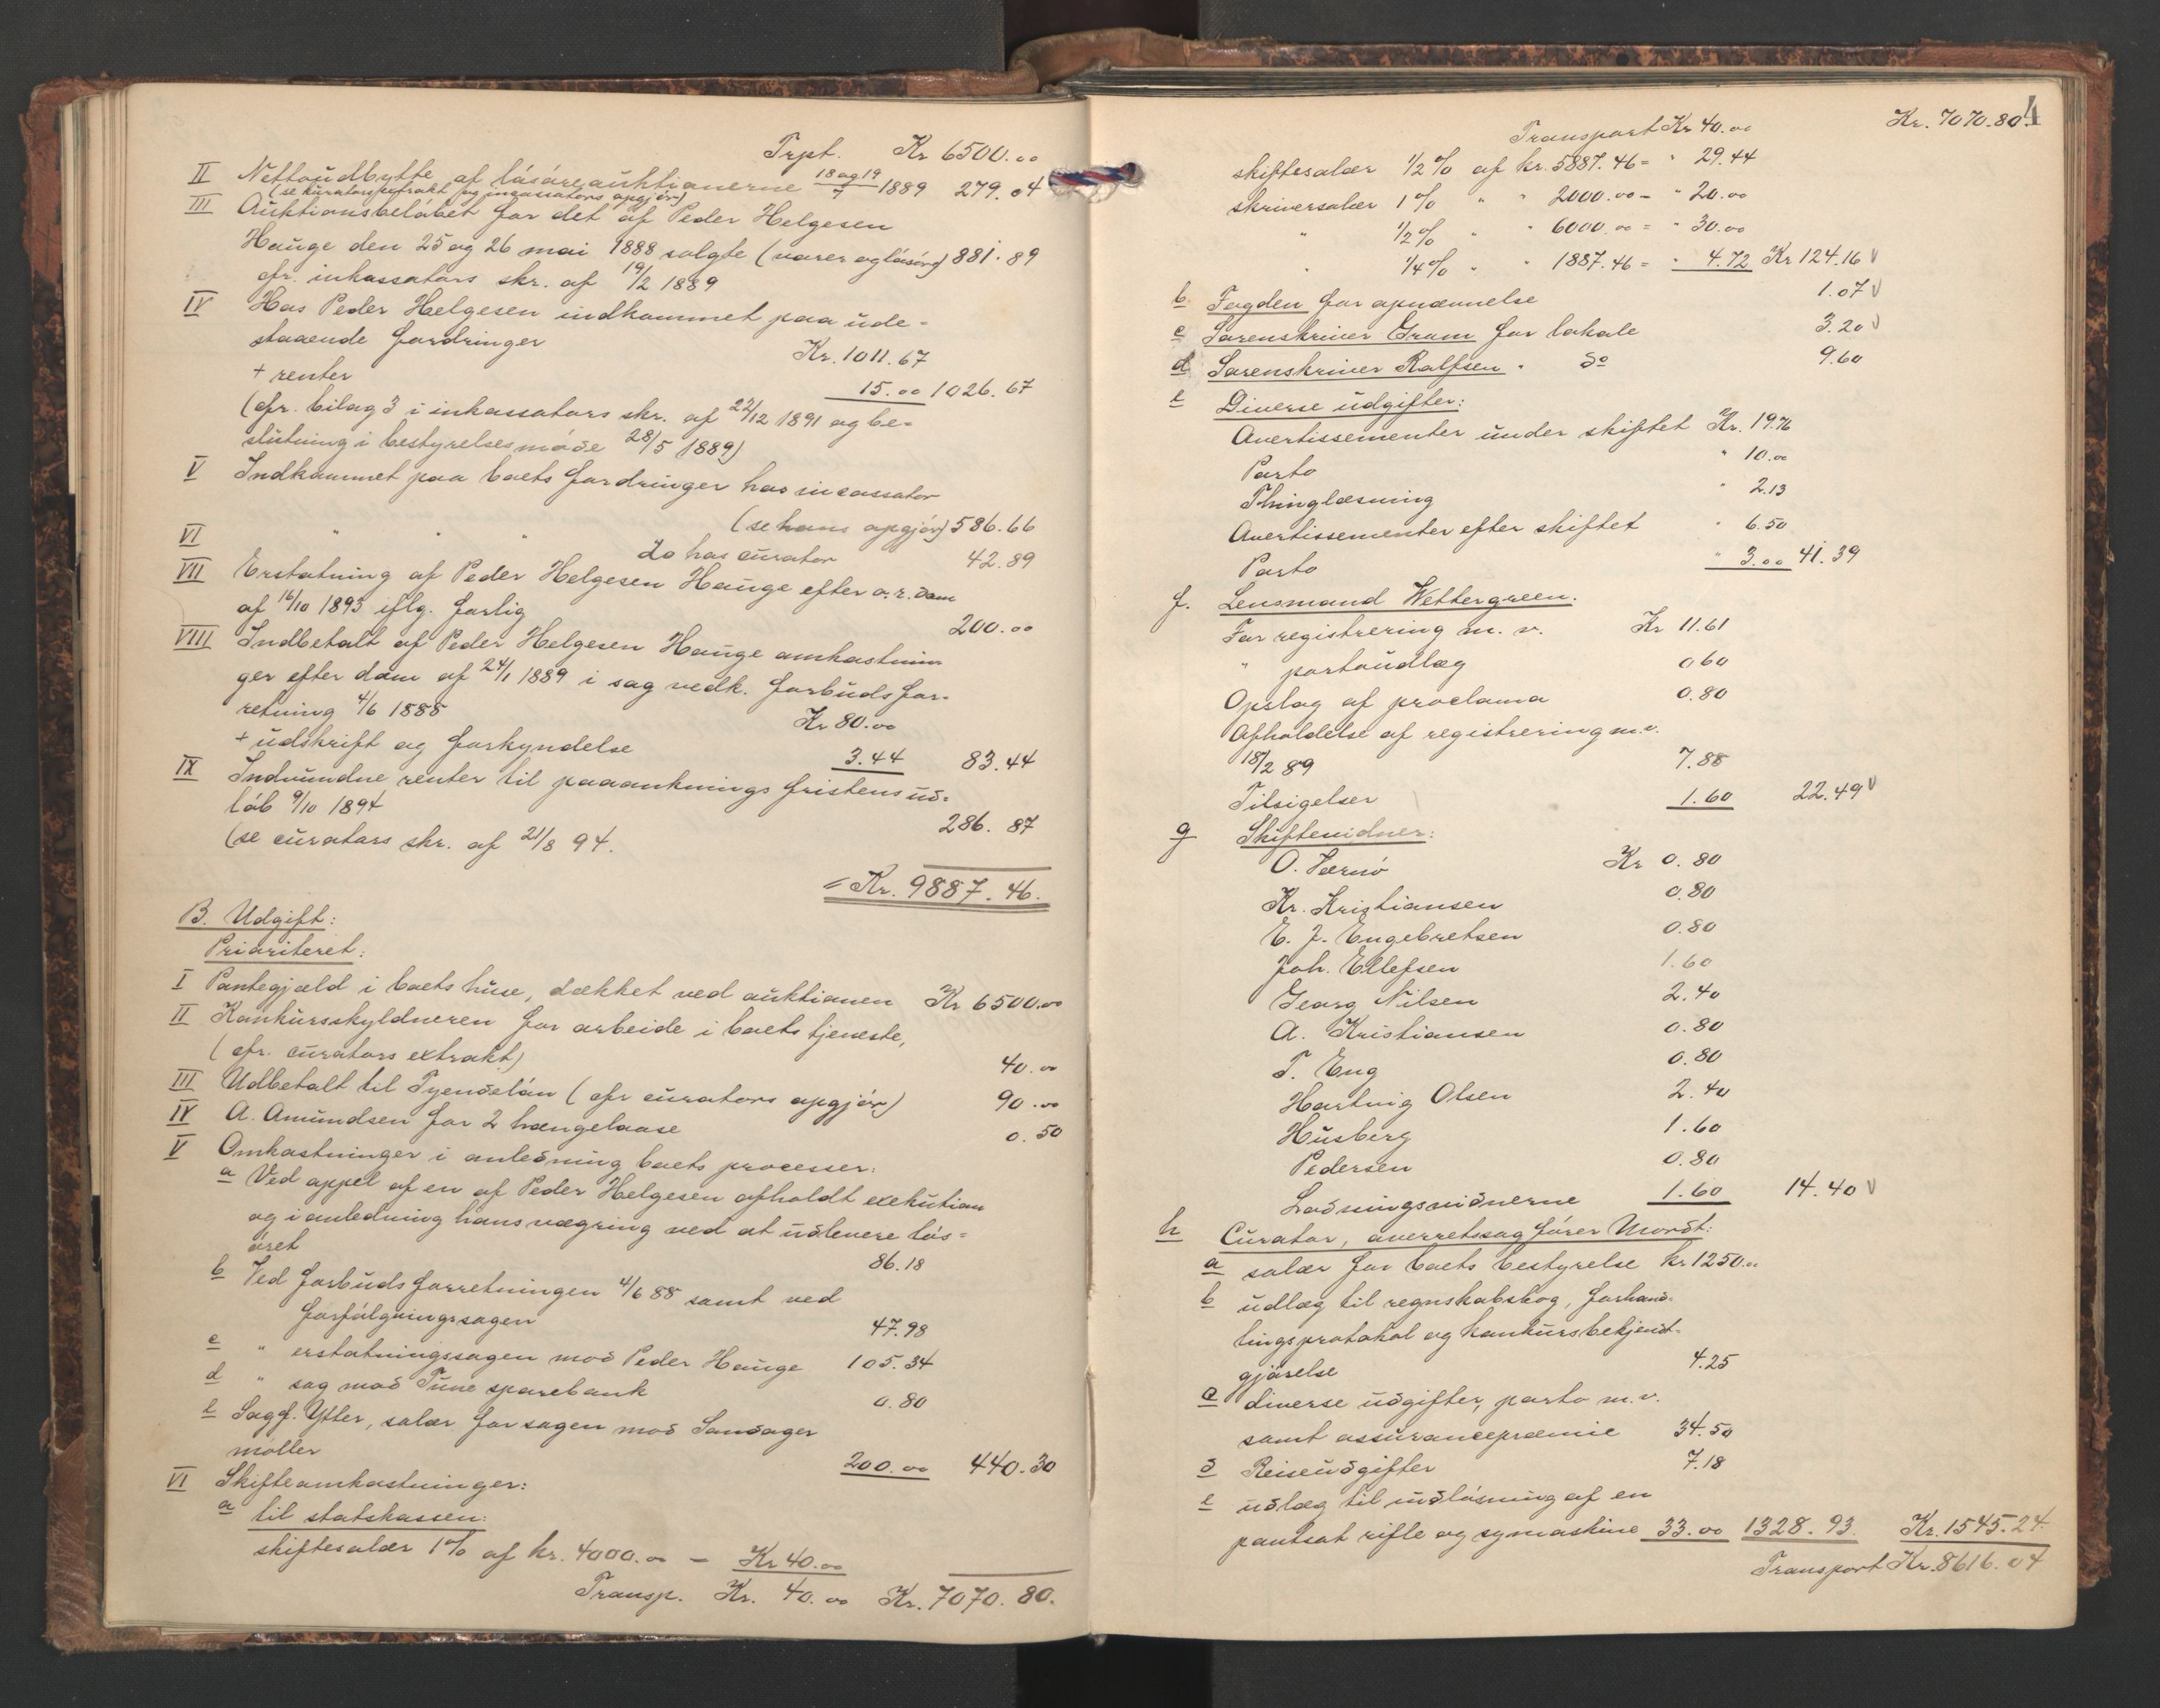 Trpt. Kr 6500.00
II Nettoudbytte af løsøreauktionerne 18 og 19/7 1889 279.04
(se kurators extrakt og incassators opgjør)
III Auktionsbeløbet for det af Peder Helgesen
Hauge den 25 og 26 mai 1888 solgte (varer og løsøre) 881.89
cfr. inkassators skr. af 19/2 1889
IV Hos Peder Helgesen indkommet paa ude-
staaende fordringer Kr. 1011.67
+ renter 15.00 1026.67
(cfr. bilag 3 i inkassators skr. af 22/12 1891 og be-
slutning i bestyrelsesmøde 28/5 1889)
V Indkommet paa boets fordringer hos incassator
(se hans opgjør) 586.66
VI " " " do hos curator 42.89
VII Erstatning af Peder Helgesen Hauge efter o.r. dom
af 16/10 1893 iflg. forlig 200.00
VIII Indbetalt af Peder Helgesen Hauge omkostnin
ger efter dom af 24/1 1889 i sag vedk. forbudsfor-
retning 4/6 1888 Kr 80.00
+ udskrift og forkyndelse 3.44 83.44
IX Indvundne renter til paaanknings fristens ud-
løb 9/10 1894 286.87
(se curators skr. af 21/8 94.
= Kr. 9887.46.
B. Udgift:
Prioriteret:
I Pantegjæld i boets huse, dækket ved auktionen Kr 6500.00
II Konkursskyldneren for arbeide i boets tjeneste,
(cfr. curators extrakt) 40.00
III Udbetalt til Tyendeløn (cfr curators opgjør) 90.00
IV A. Amundsen for 2 hængelaase 0.50
V Omkostninger i anledning boets processer:
a Ved appel af en af Peder Helgesen afholdt exekution
og i anledning hans vægring ved at udlevere løs-
øret 86.18
b Ved forbudsforretningen 4/6 88 samt ved
forfølgningssagen 47.98
c " erstatningssagen mod Peder Hauge 105.34
d " sag mod Tune sparebank 0.80
e Sagf. Ytter, salær for sagen mod Sandager
møller 200.00 440.30
VI Skifteomkostninger:
a til statskassen:
skiftesalær 1% af kr. 4000.00 — Kr 40.00
Transp. Kr. 40.00 Kr. 7070.80.
4
Transport Kr 40.00 Kr. 7070.80.
skiftesalær 1/2% af kr. 5887.46 = " 29.44
skriversalær 1% " " 2000.00 - " 20.00
" 1/2% " " 6000.00 = " 30.00
" 1/4% " " 1887.46 = " 4.72 Kr 124.16 V
b Fogden for opnævnelse 1.07 V
c Sorenskriver Gram for lokale 3.20 V
d Sorenskriver Rolfsen " do 9.60
e Diverse udgifter:
Avertissementer under skiftet Kr. 19.76
Porto " 10.00
Thinglæsning " 2.13
Avertissementer efter skiftet " 6.50
Porto " 3.00 41.39
f. Lensmand Wettergreen.
For registrering m. v. Kr 11.61
" portoudlæg 0.60
Opslag af proclama 0.80
Afholdelse af registrering m.v.
18/2 89 7.88
Tilsigelser 1.60 22.49 V
g Skiftevidner:
O. Værnø Kr 0.80
Kr. Kristiansen 0.80
E. J. Engebretsen 0.80
Joh. Ellefsen 1.60
Georg Nilsen 2.40
A. Kristiansen 0.80
T. Eng 0.80
Hartvig Olsen 2.40
Husberg 1.60
Pedersen 0.80
Lodningsvidnerne 1.60 14.40 V
h Curator, overretssagfører Mordt:
a salær for boets bestyrelse kr 1250.00
b udlæg til regnskabsbog, forhand-
lingsprotokol og konkursbekjendt-
gjørelse 4.25
c diverse udgifter, porto m.v.
samt assurancepræmie 34.50
d Reiseudgifter 7.18
e udlæg til indløsning af en
pantsat rifle og symaskine 33.00 1328.93 Kr. 1545.24
Transport Kr. 8616.04